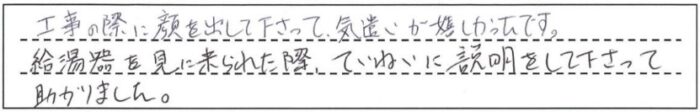 工事の際に顔を出して下さって、気遣いが嬉しかったです。
給湯器を見に来られた際、ていねいに説明をして下さって
助かりました。